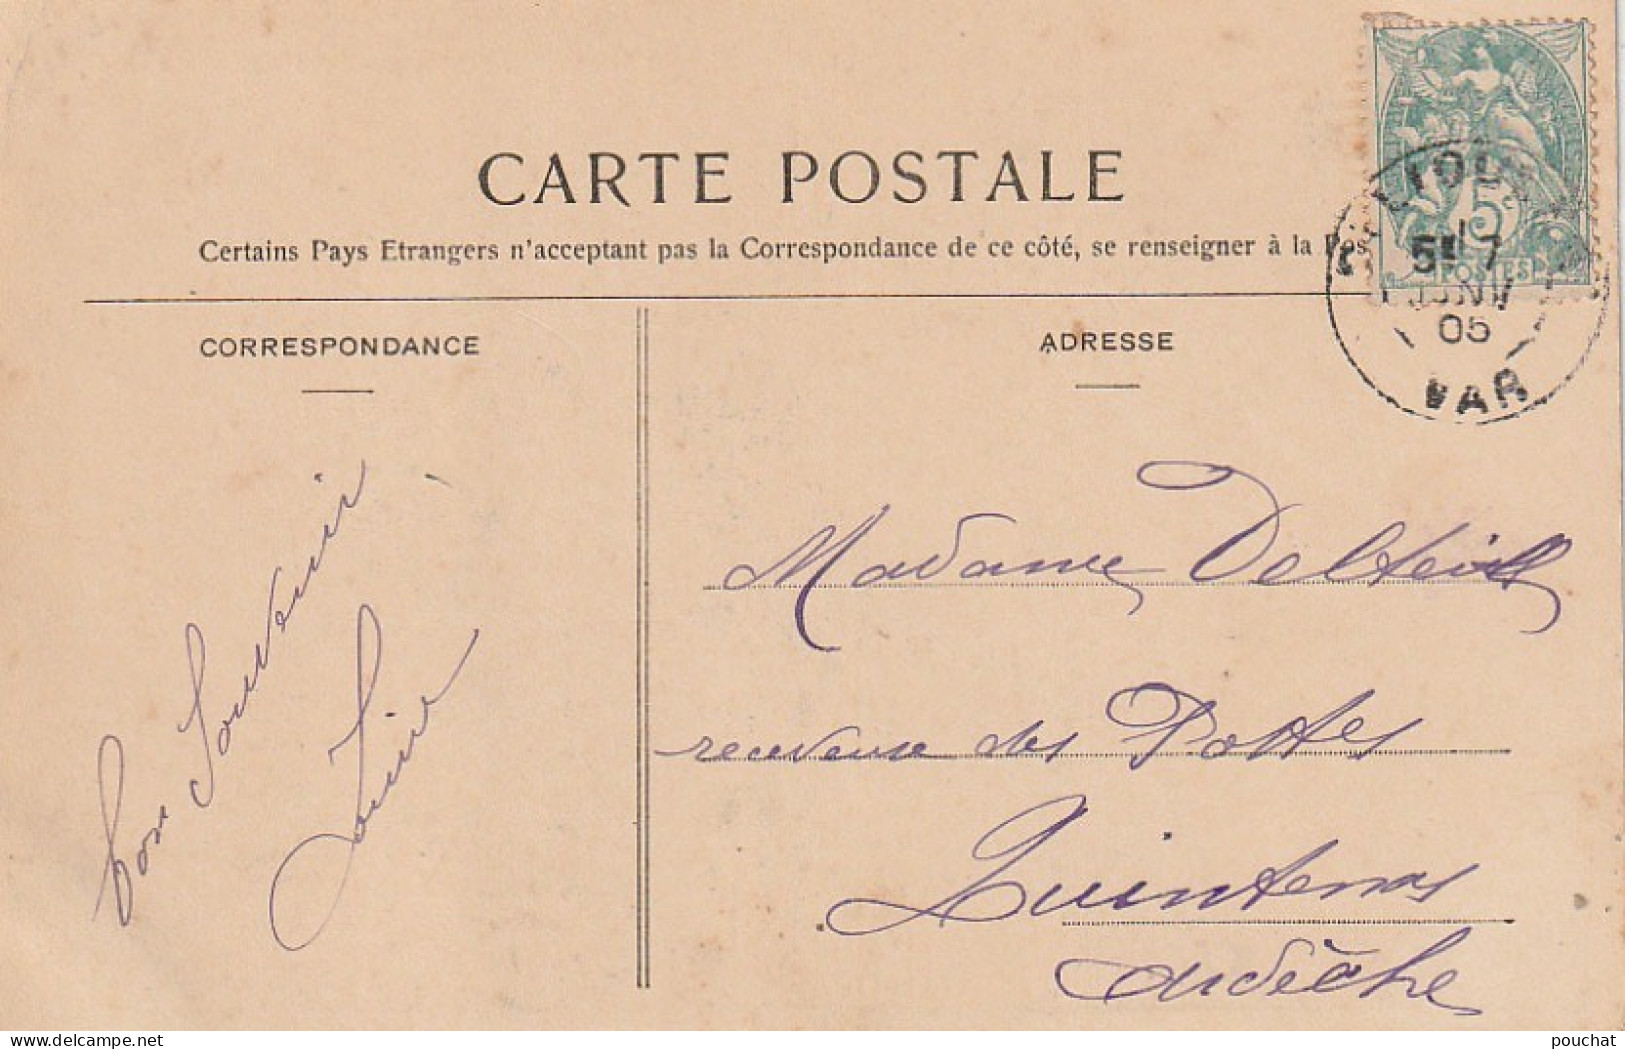 CARTE POSTALE
Certains Pays Etrangers n'acceptant pas la Correspondance de ce côté, se renseigner à la Pos
CORRESPONDANCE
ADRESSE
5
POSTES
5E 7
JANV
05
VAR
Bon Souvenir
Madame Delteil
receveuse des Postes
Quintenas
Ardèche
delcampe.net
pouchat